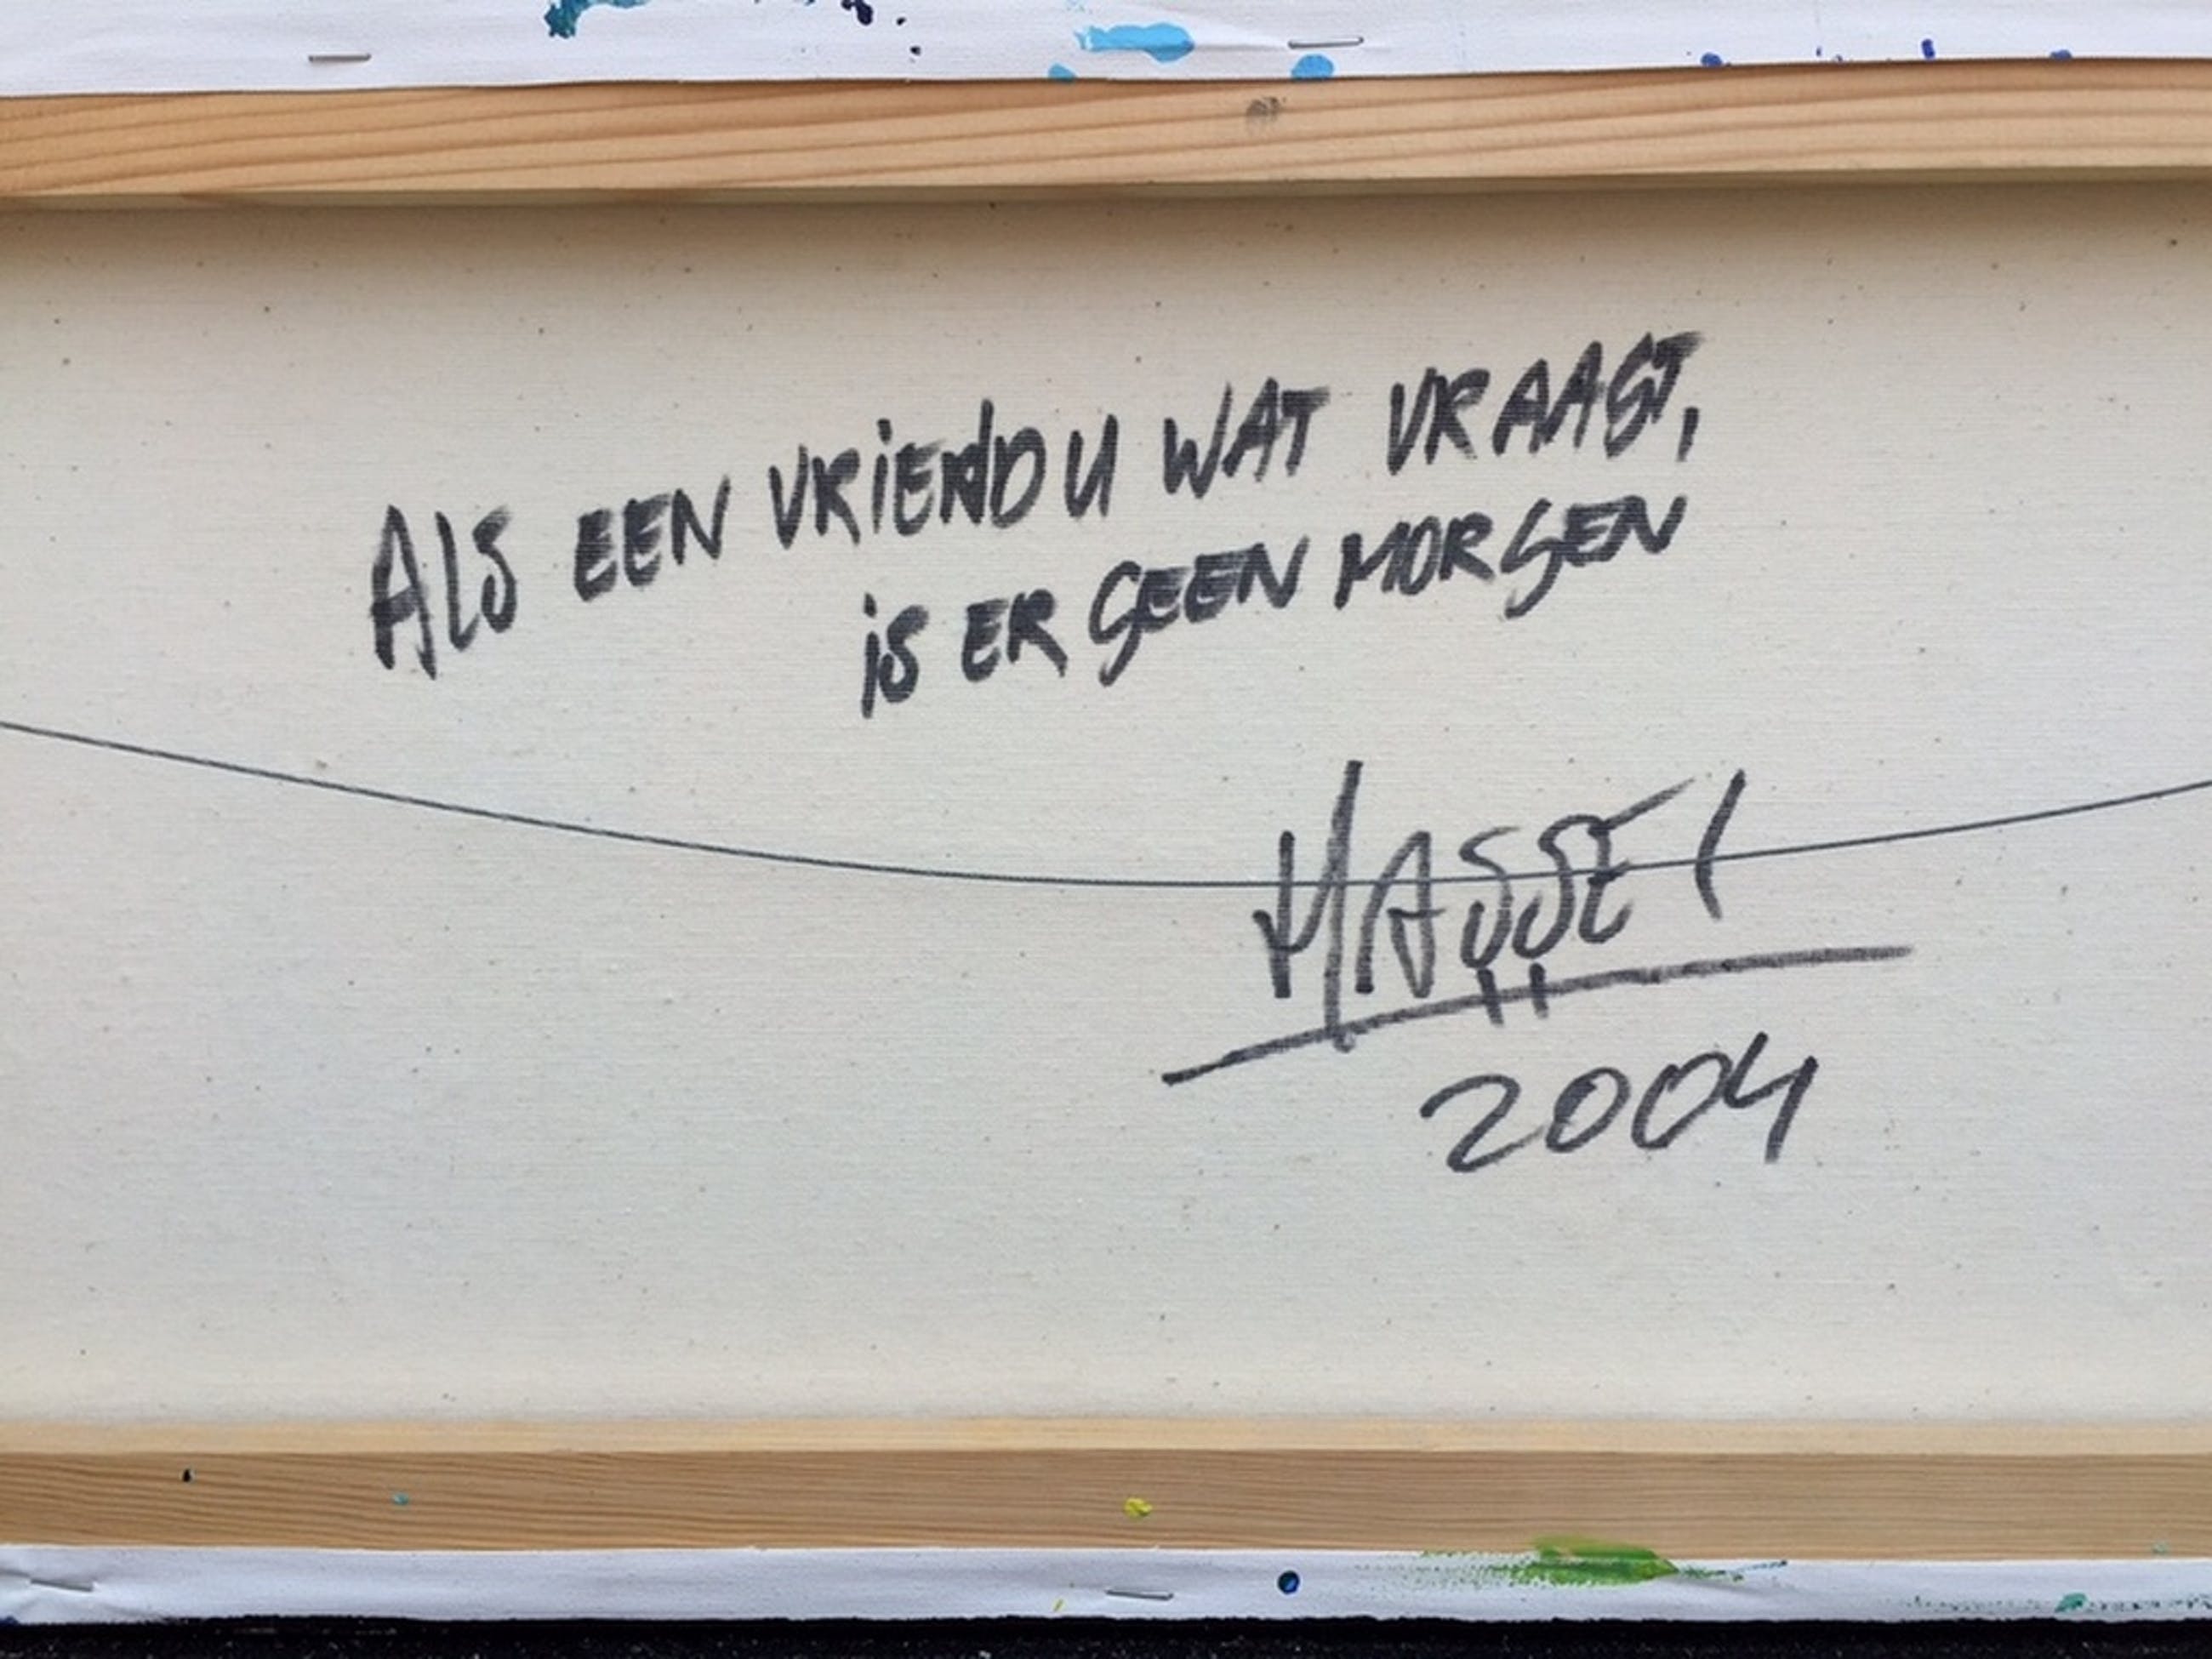 ALS EEN VRIEND U WAT VRAAGT,
iS ER GEEN MORGEN
MASSEL
2004